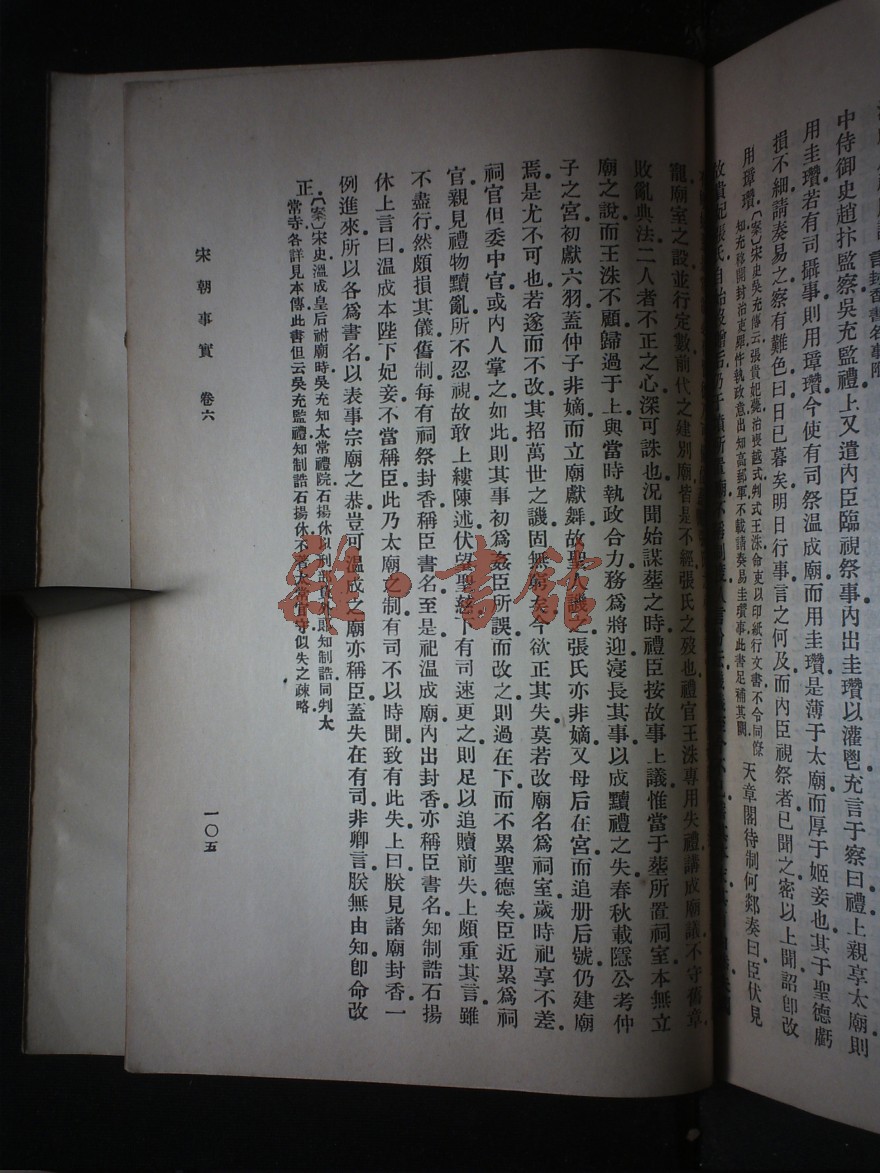 言封香書名事附
中侍御史趙抃監察吳充監禮上又遣內臣臨視祭事內出圭瓚以灌鬯充言于察曰禮上親享太廟則
用圭瓚若有司攝事則用璋瓚今使有司祭溫成廟而用圭瓚是薄于太廟而厚于姬妾也其于聖德虧
損不細請奏易之察有難色曰日已暮矣明日行事言之何及而內臣視祭者已聞之密以上聞詔卽改
用璋瓚
(案)宋史吳充傳云張貴妃薨治喪越式判式王洙命吏以印紙行文書不令同僚
知充移開封治吏罪忤執政意出知高郵軍不載請奏易圭瓚事此書足補其闕
天章閣待制何郯奏曰臣伏見
故貴妃張氏自
寵廟室之設並行定數前代之建別廟皆是不經張氏之歿也禮官王洙專用失禮講成廟議不守舊章
敗亂典法二人者不正之心深可誅也況聞始謀葬之時禮臣按故事上議惟當于葬所置祠室本無立
廟之說而王洙不顧歸過于上與當時執政合力務爲將迎寖長其事以成黷禮之失春秋載隱公考仲
子之宮初獻六羽蓋仲子非嫡而立廟獻舞故聖人譏之張氏亦非嫡又母后在宮而追册后號仍建廟
焉是尤不可也若遂而不改其招萬世之譏固無窮矣今欲正其失莫若改廟名爲祠室歲時祀享不差
祠官但委中官或內人掌之如此則其事初爲姦臣所誤而改之則過在下而不累聖德矣臣近累爲祠
官親見禮物黷亂所不忍視故敢上縷陳述伏望聖慈下有司速更之則足以追贖前失上頗重其言雖
不盡行然頗損其儀舊制每有祠祭封香稱臣書名至是祀溫成廟內出封香亦稱臣書名知制誥石揚
休上言曰溫成本陛下妃妾不當稱臣此乃太廟之制有司不以時聞致有此失上曰朕見諸廟封香一
例進來所以各爲書名以表事宗廟之恭豈可溫成之廟亦稱臣蓋失在有司非卿言朕無由知卽命改
正
(案)宋史溫成皇后祔廟時吳充知太常禮院石揚休以刑部員外郎知制誥同判太
常寺各詳見本傳此書但云吳充監禮知制誥石揚休不著太常官守似失之疎略
宋朝事實 卷六
一〇五
雒書館